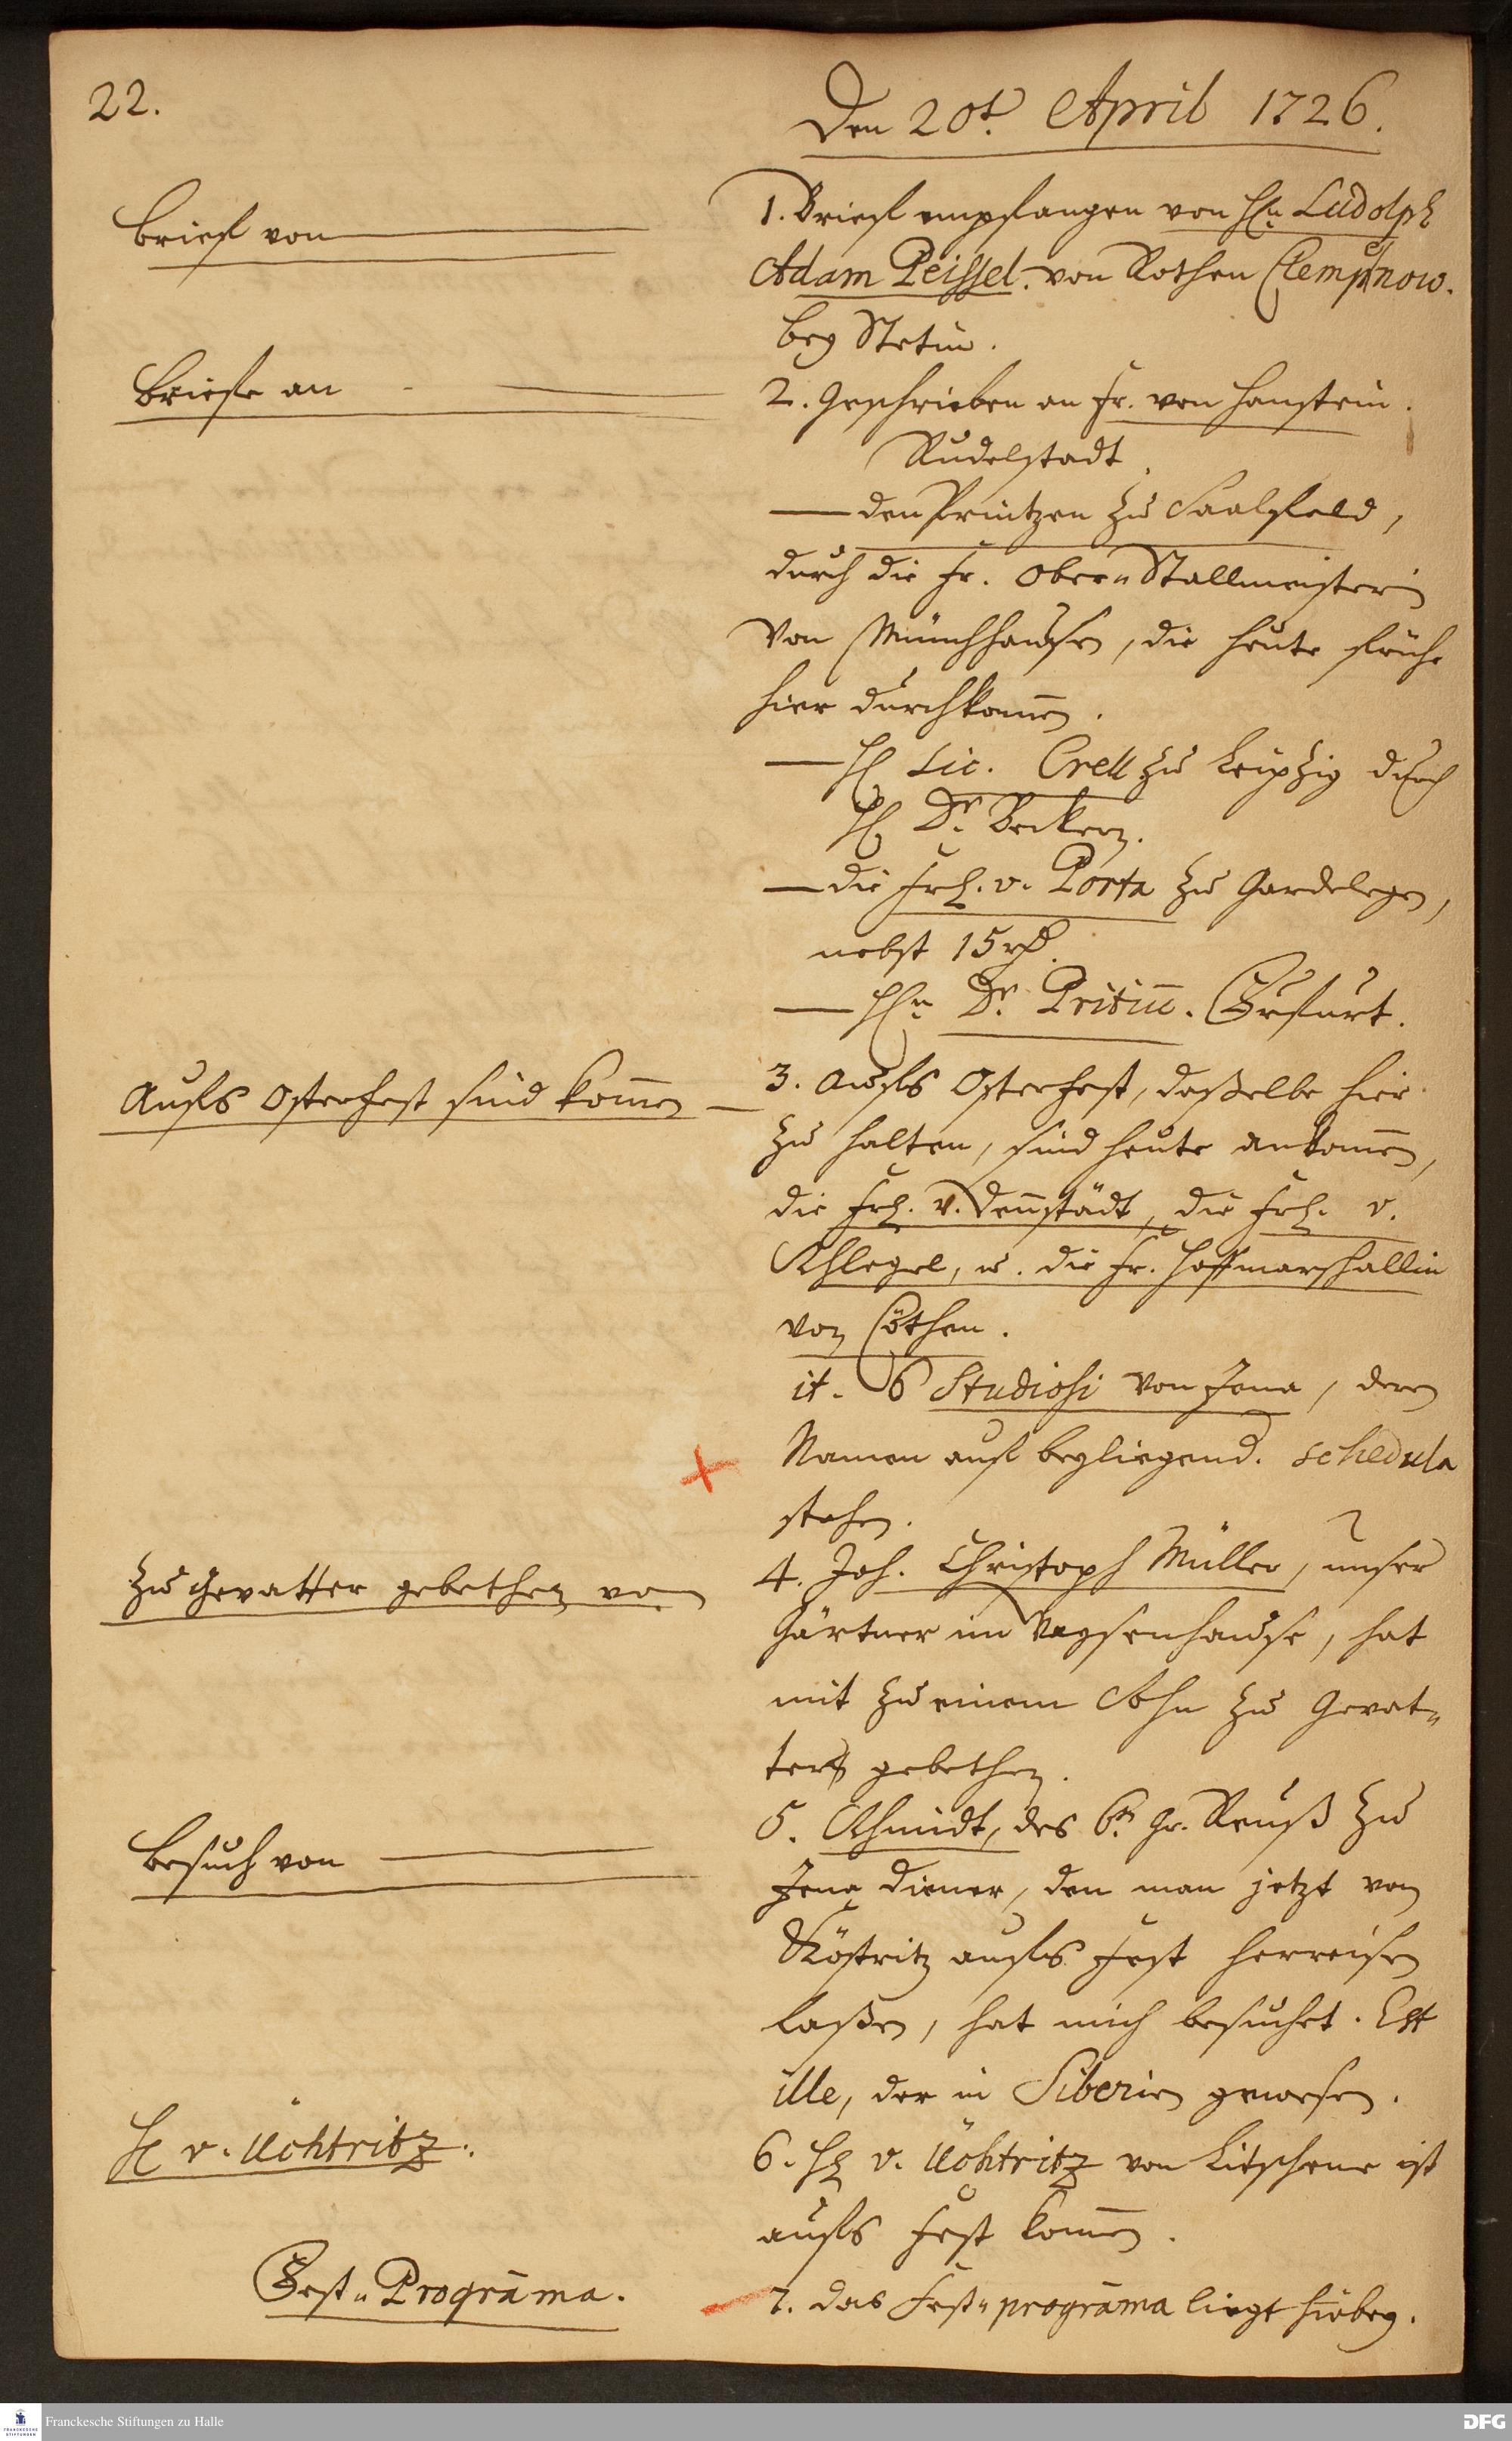 22.
Den 20t. April 1726.
Brief von
1. Brief empfangen von Hn Ludolph
Adam Peissel. von Rothen Clempnow.
bey Stetin.
Briefe an
2. Geschrieben an Fr. von Hanstein.
Rudelstadt
— den Printzen zu Saalfeld,
durch die Fr. Ober-Stallmeisterin
von Münchhausen, die heute frühe
hier durchkom̄en.
— H Lic. Crell zu Leipzig durch
H Dr. Beckern.
— die Frl. v. Porta zu Gardelegen,
nebst 15 rthl.
— Hn Dr. Pritiū. Franckfurt.
Aufs Osterfest sind kom̄en
3. Aufs Osterfest, daßelbe hier
zu halten, sind heute ankom̄en,
die Frl. v. Den̄städt, die Frl. v.
Schlegel, u. die Fr. Hoffmarschallin
von Cöthen.
it. 6 Studiosi von Jena, deren
Namen auf beyliegend. schedula
stehen.
Zu Gevatter gebethen von
4. Joh. Christoph Müller, unser
Gärtner im Waysenhause, hat
mit zu einem Sohn zu Gevat-
tern gebethen.
Besuch von
5. Schmidt, des Gr. Reuß zu
Jena Diener, den man jetzt von
Köstritz aufs Fest herreisen
laßen, hat mich besuchet. Est
ille, der in Siberien gewesen.
H v. Üchtritz.
6. H v. Üchtritz von Litschene ist
aufs Fest kom̄en.
Fest-Progrāma.
7. das Fest-progrāma liegt hiebey.
Franckesche Stiftungen zu Halle
DFG